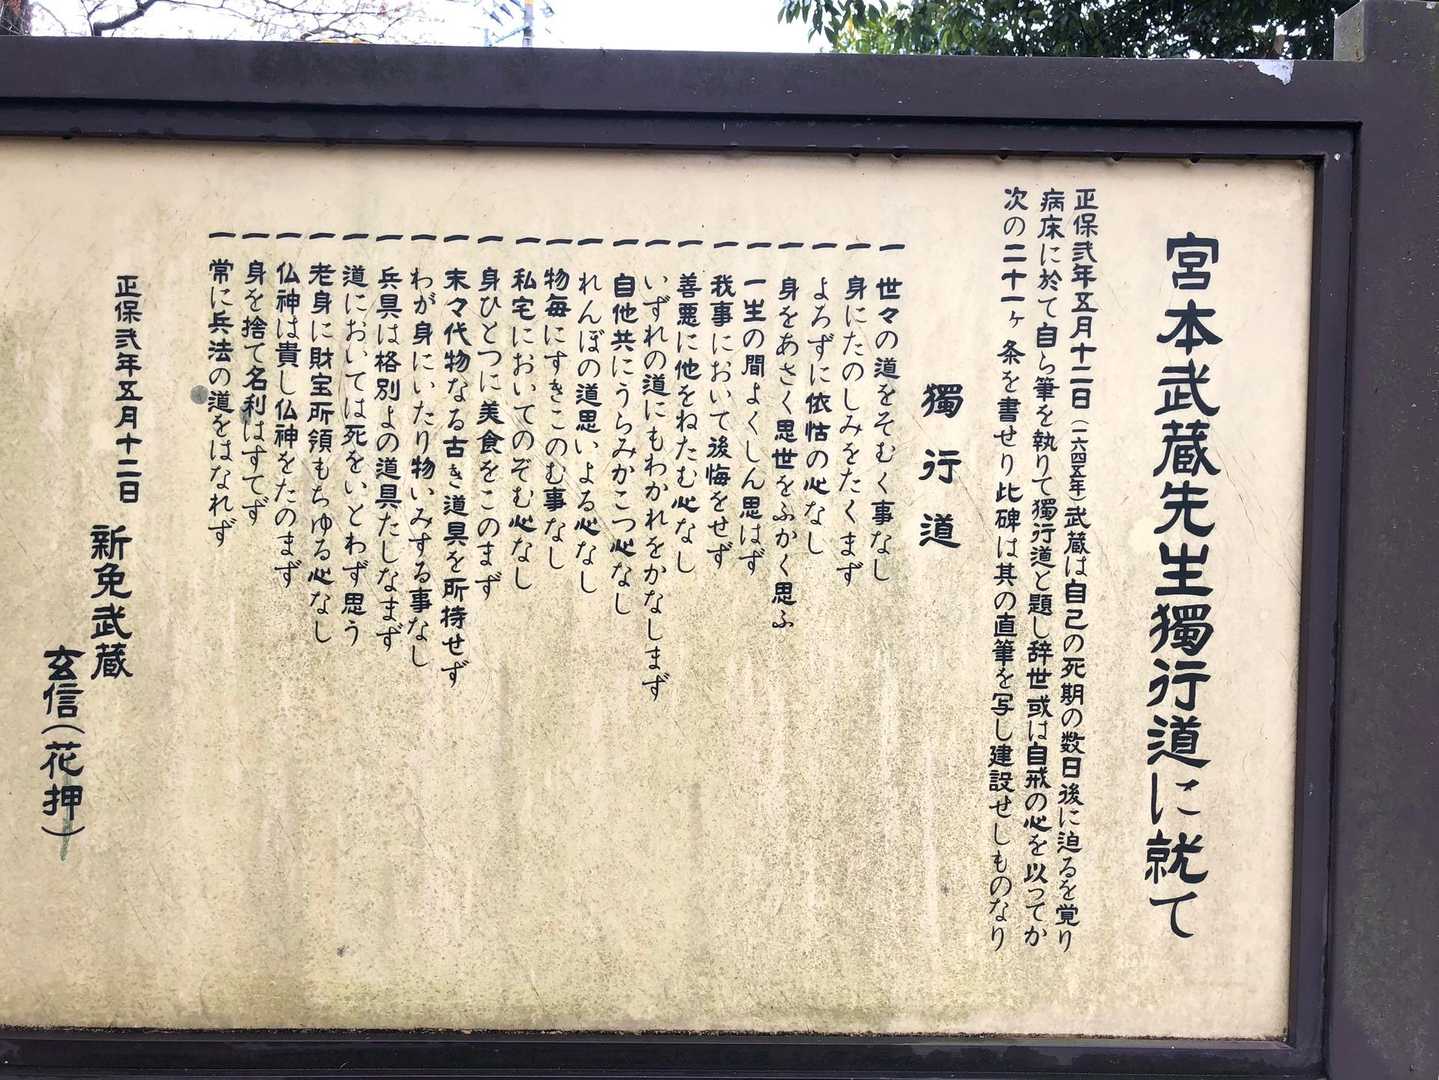 宮本武蔵先生獨行道に就て
正保弐年五月十二日(一六四五年)武蔵は自己の死期の数日後に迫るを覚り
病床に於て自ら筆を執りて獨行道と題し辞世或は自戒の心を以ってか
次の二十一ヶ条を書せり此碑は其の直筆を写し建設せしものなり
獨行道
一 世々の道をそむく事なし
一 身にたのしみをたくまず
一 よろずに依怙の心なし
一 身をあさく思世をふかく思ふ
一 一生の間よくしん思はず
一 我事において後悔をせず
一 善悪に他をねたむ心なし
一 いずれの道にもわかれをかなしまず
一 自他共にうらみかこつ心なし
一 れんぼの道思いよる心なし
一 物毎にすきこのむ事なし
一 私宅においてのぞむ心なし
一 身ひとつに美食をこのまず
一 末々代物なる古き道具を所持せず
一 わが身にいたり物いみする事なし
一 兵具は格別よの道具たしなまず
一 道においては死をいとわず思う
一 老身に財宝所領もちゆる心なし
一 仏神は貴し仏神をたのまず
一 身を捨て名利はすてず
一 常に兵法の道をはなれず
正保弐年五月十二日
新免武蔵
玄信(花押)